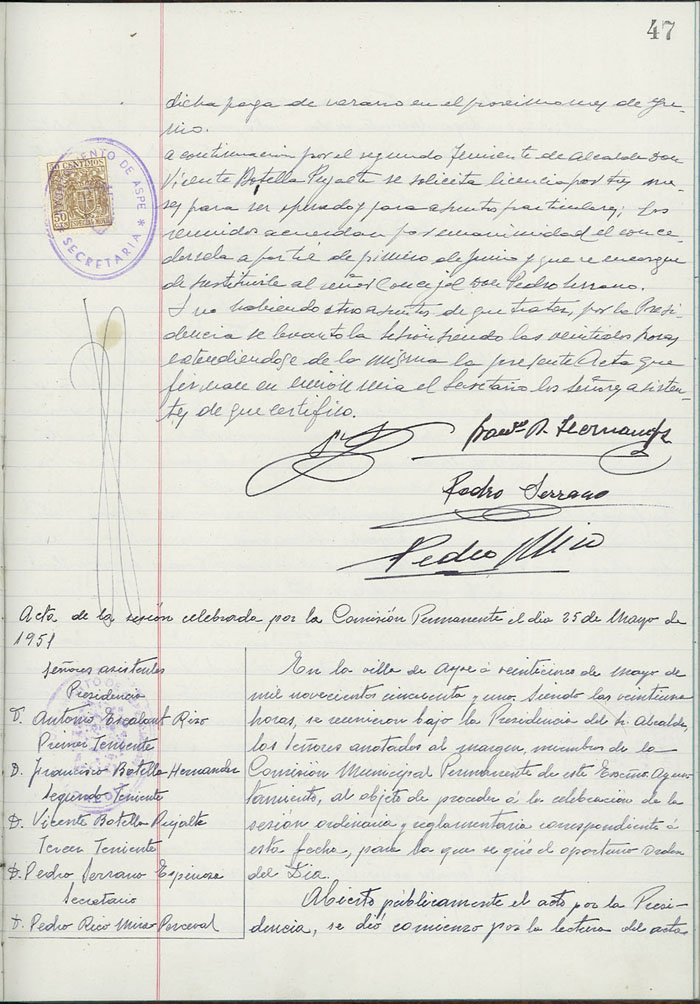 47
dicha paga de verano en el proximo mes de Ju-
nio.
a continuacion por el segundo Teniente de Alcalde Don
Vicente Botella Pujalte se solicita licencia por tres me-
ses para ser operado y para asuntos particulares; los
reunidos acuerdan por unanimidad el conce-
dersela a partir de primero de junio y que se encargue
de sustituirle al señor Concejal Don Pedro Serrano.
Y no habiendo otros asuntos de que tratar, por la Presi-
dencia se levantó la sesión siendo las veintidos horas
extendiendose de la misma la presente Acta que
firman en unión mia el Secretario los señores asisten-
tes de que certifico.
AYUNTAMIENTO DE ASPE * SECRETARIA *
50 CENTIMOS
50
Franco B. Hernandez
Pedro Serrano
Pedro Miro
Acta de la sesión celebrada por la Comisión Permanente el dia 25 de Mayo de
1951
Señores asistentes
Presidencia
D. Antonio Escalant Rizo
Primer Teniente
D. Francisco Botella Hernandez
Segundo Teniente
D. Vicente Botella Pujalte
Tercer Teniente
D. Pedro Serrano Espinosa
Secretario
D. Pedro Rico Miro Perceval
En la villa de Aspe á veinticinco de Mayo de
mil novecientos cincuenta y uno. Siendo las veintiuna
horas, se reunieron bajo la Presidencia del Sr. Alcalde,
los Señores anotados al margen, miembros de la
Comisión Municipal Permanente de este Excmo. Ayun-
tamiento, al objeto de proceder á la celebración de la
sesión ordinaria y reglamentaria correspondiente á
esta fecha, para la que se siguió el oportuno Orden
del Dia.
Abierto públicamente el acto por la Presi-
dencia, se dió comienzo por la lectura del acta